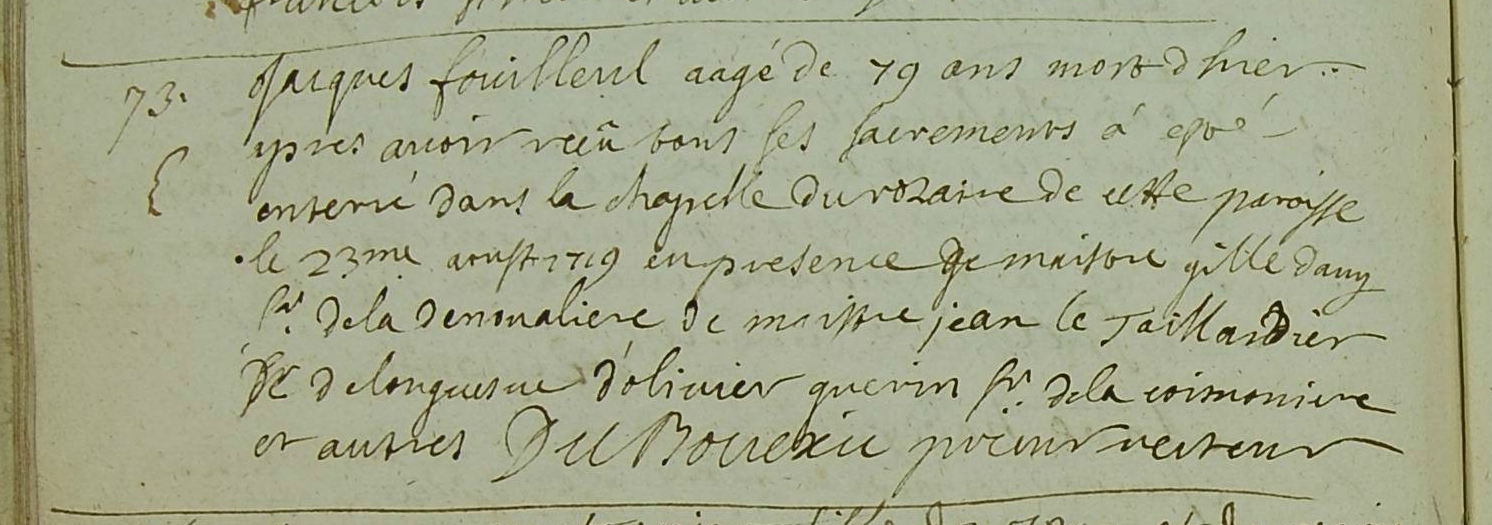 73. Jacques fouilleul aagé de 79 ans mort d hier
apres avoir reçû tous ses sacrements á eté
enterré dans la chapelle du rozaire de cette paroisse
le 23me aoust 1719 en presence de maistre gille dauy
sr. de la denoualiere de maistre jean le Taillandier
sr de longuesue d'oliuier guerin sr. de la coimoniere
et autres Du Bouexic prieur recteur